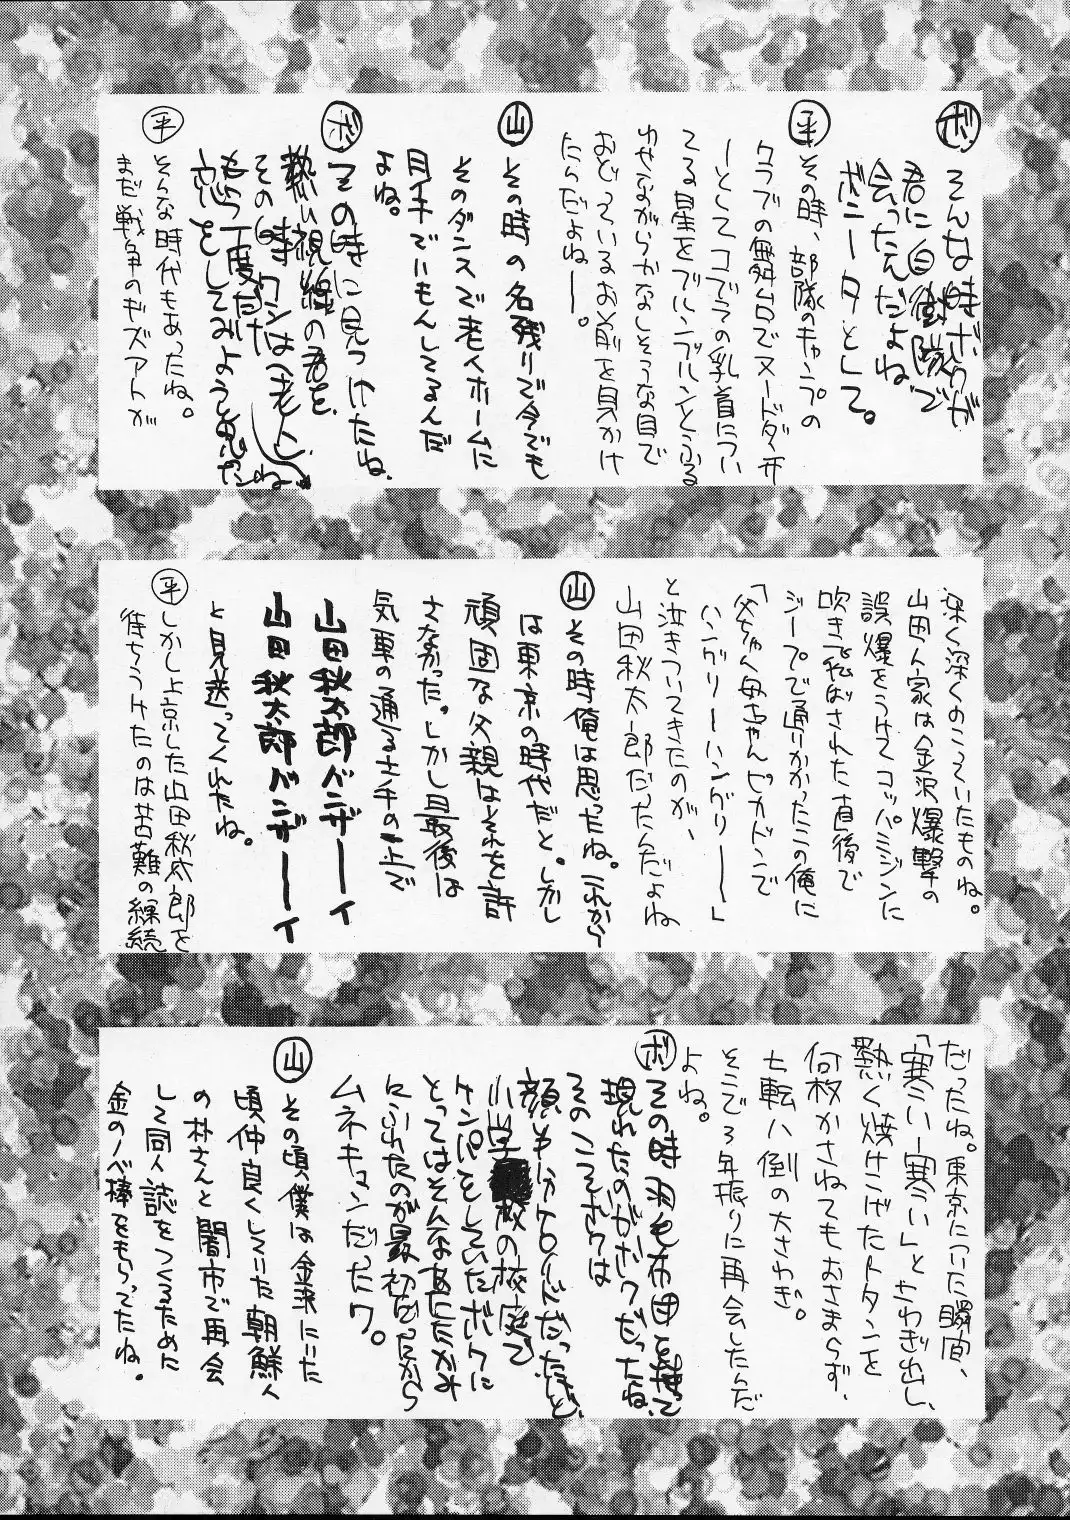 ボ そんな時ボクが
君に自衛隊で
会ったんだよね
ボニータとして。
平 その時、部隊のキャンプの
クラブの舞台でヌードダンサ
ーとしてコブラの乳首につい
てる星をブルンブルンとふる
わせながらかなしそうな目で
おどっているお前を見かけ
たんだよねー。
山 その時の名残りで今でも
そのダンスで老人ホームに
目手でいもんしてるんだ
よね。
ボ その時に見つけたね。
熱い視線の君を。
その時ワシは老いらくね
もう一度だけ
恋をしてみようと思った
平 そんな時代もあったね。
まだ戦争のキズアトが
深く深くのこっていたものね。
山田人家は金沢爆撃の
誤爆をうけてコッパミジンに
吹き飛ばされた直後で
ジープで通りかかったこの俺に
「父ちゃん母ちゃんピカドンで
ハングリーハングリー――」
と泣きついてきたのが、
山田秋太郎だったんだよね
山 その時俺は思ったね。これから
は東京の時代だと。しかし
頑固な父親はそれを許
さなかった。しかし最後は
気車の通る土手の上で
山田秋太郎バンザーイ
山田秋太郎バンザーイ
と見送ってくれたね。
平 しかし上京した山田秋太郎を
待ちうけたのは苦難の継続
だったね。東京についた瞬間、
「寒い―寒い」とさわぎ出し、
熱く焼けこげたトタンを
何枚かさねてもおさまらず、
七転八倒の大さわぎ。
そこで3年振りに再会したんだ
よね。
ボ その時羽毛布団を持って
現れたのがボクだったね、
そのころボクは
顔もハンケロイドだったけど、
小学校の校庭で
ケンパをしていたボクに
とってはそんなあたたかみ
にふれたのが最初だったから
ムネキュンだったワ。
山 その頃、僕は金沢にいた
頃仲良くしていた朝鮮人
の朴さんと闇市で再会
して同人誌をつくるために
金のノベ棒をもらってたね。